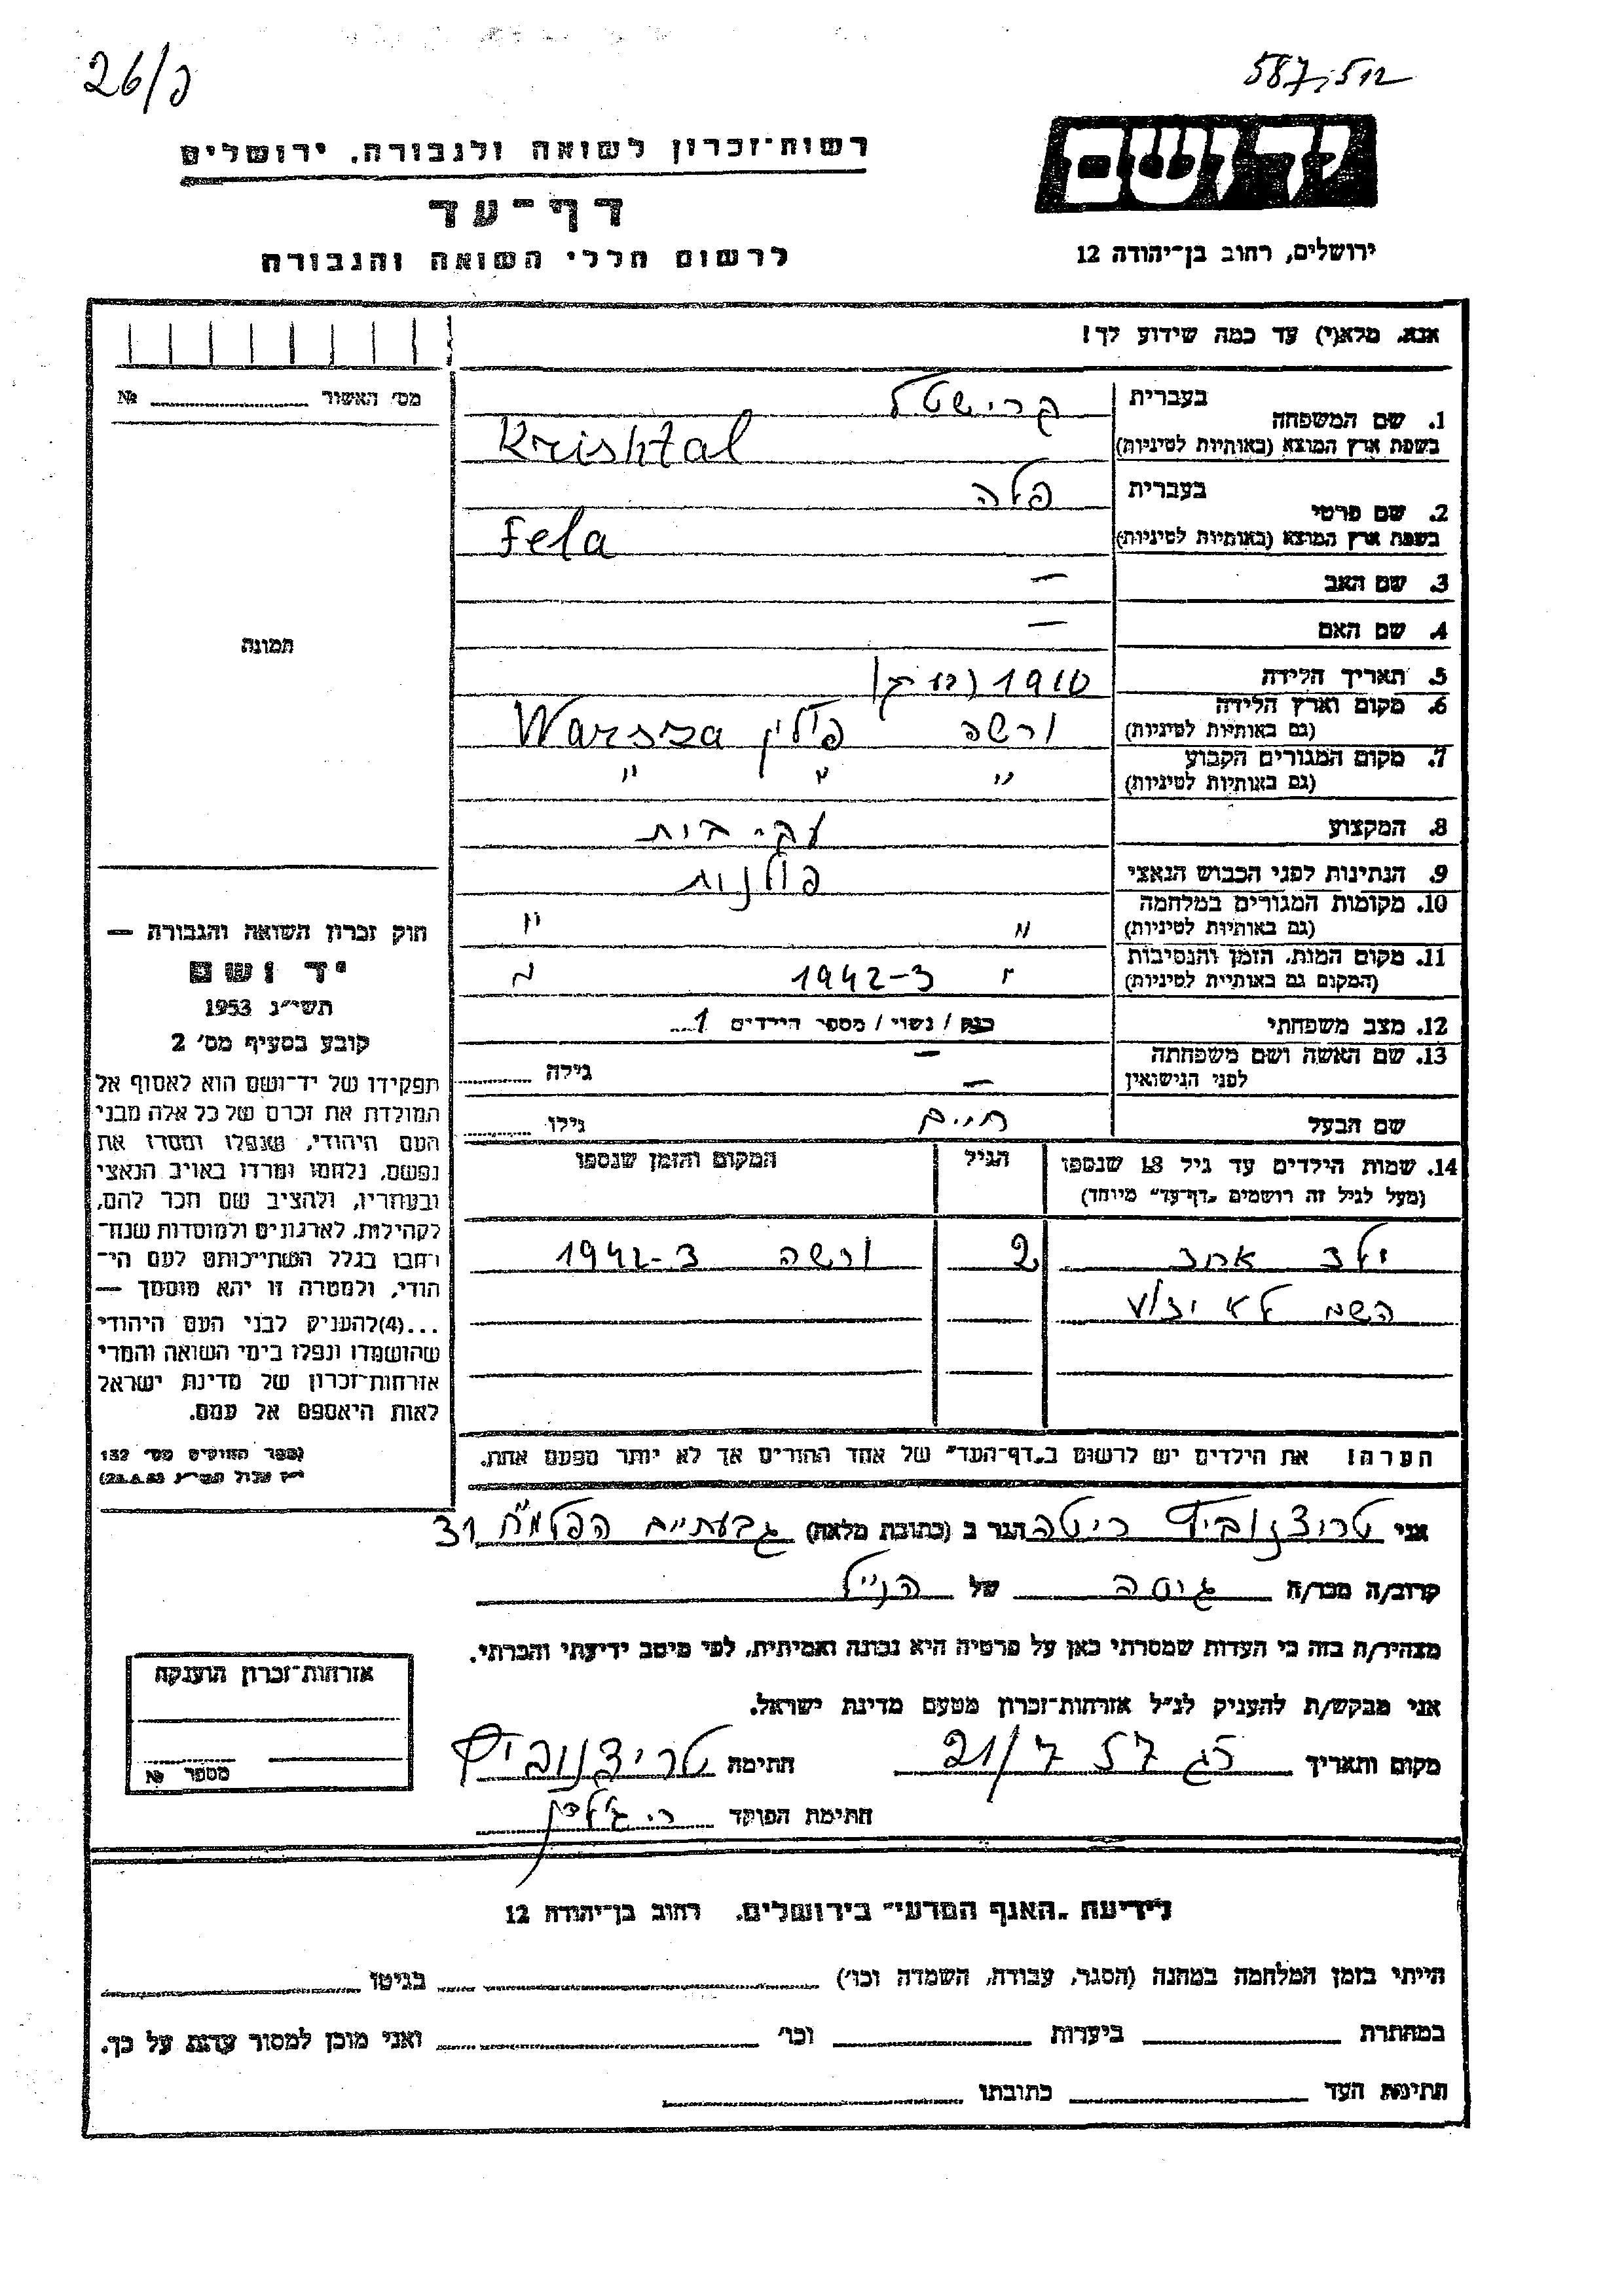 26/פ
587,512
יד ושם
ירושלים, רחוב בן־יהודה 12
רשות־זכרון לשואה ולגבורה, ירושלים
דף־עד
לרשום חללי השואה והגבורה
אנא, מלא(י) עד כמה שידוע לך!
מס׳ האשור № 
1. שם המשפחה בעברית קרישטל
בשפת ארץ המוצא (באותיות לטיניות) Krishtal
2. שם פרטי בעברית פלה
בשפת ארץ המוצא (באותיות לטיניות) Fela
3. שם האב —
4. שם האם —
5. תאריך הלידה 1910
6. מקום וארץ הלידה ורשה פולין Warsza
(גם באותיות לטיניות)
7. מקום המגורים הקבוע " " "
(גם באותיות לטיניות)
8. המקצוע עק. בית
9. הנתינות לפני הכבוש הנאצי פולנית
10. מקומות המגורים במלחמה " "
(גם באותיות לטיניות)
11. מקום המות, הזמן והנסיבות " 1942-3 "
(המקום גם באותיית לטיניות)
12. מצב משפחתי רנק / נשוי / מספר הילדים 1
13. שם האשה ושם משפחתה —
לפני הנישואין — גילה
שם הבעל חיים גילו
14. שמות הילדים עד גיל 18 שנספו הגיל המקום והזמן שנספו
(מעל לגיל זה רושמים „דף־עד״ מיוחד)
ילד אחד 2 ורשה 1942-3
השם לא ידוע
הערה! את הילדים יש לרשום ב„דף־העד״ של אחד ההורים אך לא יותר מפעם אחת.
תמונה
חוק זכרון השואה והגבורה —
יד ושם
תשי״ג 1953
קובע בסעיף מס׳ 2
תפקידו של יד־ושם הוא לאסוף אל
המולדת את זכרם של כל אלה מבני
העם היהודי, שנפלו ומסרו את
נפשם, נלחמו ומרדו באויב הנאצי
ובעוזריו, ולהציב שם וזכר להם,
לקהילות, לארגונים ולמוסדות שנח־
רבו בגלל השתייכותם לעם הי־
הודי, ולמטרה זו יהא מוסמך —
...(4)להעניק לבני העם היהודי
שהושמדו ונפלו בימי השואה והמרי
אזרחות־זכרון של מדינת ישראל
לאות היאספם אל עמם.
(ספר החוקים מס׳ 132
אני טרידנוביץ ריטה הגר ב (כתובת מלאה) גבעתיים הפלמ"ח 31
קרוב/ה מכר/ה גיסה של הנ"ל
מצהיר/ה בזה כי העדות שמסרתי כאן על פרטיה היא נכונה ואמיתית, לפי מיטב ידיעתי והכרתי.
אני מבקש/ת להעניק לנ״ל אזרחות־זכרון מטעם מדינת ישראל.
מקום ותאריך רג 57 21/7 חתימה טרידנוביץ
חתימת הפוקד
אזרחות־זכרון הוענקה
מספר №
לידיעת „האגף המדעי״ בירושלים, רחוב בן־יהודה 12
הייתי בזמן המלחמה במחנה (הסגר, עבודה, השמדה וכו׳) בגיטו
במחתרת ביערות וכו׳ ואני מוכן למסור עדות על כך.
חתימת העד כתובתו